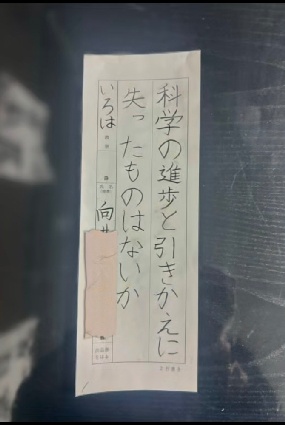 科学の進歩と引きかえに
失ったものはないか
いろは
向井